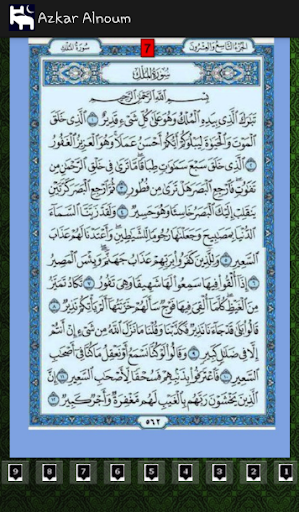 Azkar Alnoum
سورة الملك
7
الجزء التاسع والعشرون
سورة الملك
بسم الله الرحمن الرحيم
تَبَٰرَكَ ٱلَّذِي بِيَدِهِ ٱلْمُلْكُ وَهُوَ عَلَىٰ كُلِّ شَيْءٍ قَدِيرٌ ١ ٱلَّذِي خَلَقَ
ٱلْمَوْتَ وَٱلْحَيَوٰةَ لِيَبْلُوَكُمْ أَيُّكُمْ أَحْسَنُ عَمَلًا وَهُوَ ٱلْعَزِيزُ ٱلْغَفُورُ
٢ ٱلَّذِي خَلَقَ سَبْعَ سَمَٰوَٰتٍ طِبَاقًا مَّا تَرَىٰ فِي خَلْقِ ٱلرَّحْمَٰنِ مِن
تَفَٰوُتٍ فَٱرْجِعِ ٱلْبَصَرَ هَلْ تَرَىٰ مِن فُطُورٍ ٣ ثُمَّ ٱرْجِعِ ٱلْبَصَرَ كَرَّتَيْنِ
يَنقَلِبْ إِلَيْكَ ٱلْبَصَرُ خَاسِئًا وَهُوَ حَسِيرٌ ٤ وَلَقَدْ زَيَّنَّا ٱلسَّمَآءَ
ٱلدُّنْيَا بِمَصَٰبِيحَ وَجَعَلْنَٰهَا رُجُومًا لِّلشَّيَٰطِينِ وَأَعْتَدْنَا لَهُمْ عَذَابَ
ٱلسَّعِيرِ ٥ وَلِلَّذِينَ كَفَرُوا۟ بِرَبِّهِمْ عَذَابُ جَهَنَّمَ وَبِئْسَ ٱلْمَصِيرُ
٦ إِذَآ أُلْقُوا۟ فِيهَا سَمِعُوا۟ لَهَا شَهِيقًا وَهِيَ تَفُورُ ٧ تَكَادُ تَمَيَّزُ
مِنَ ٱلْغَيْظِ كُلَّمَآ أُلْقِيَ فِيهَا فَوْجٌ سَأَلَهُمْ خَزَنَتُهَآ أَلَمْ يَأْتِكُمْ نَذِيرٌ ٨
قَالُوا۟ بَلَىٰ قَدْ جَآءَنَا نَذِيرٌ فَكَذَّبْنَا وَقُلْنَا مَا نَزَّلَ ٱللَّهُ مِن شَيْءٍ إِنْ أَنتُمْ
إِلَّا فِي ضَلَٰلٍ كَبِيرٍ ٩ وَقَالُوا۟ لَوْ كُنَّا نَسْمَعُ أَوْ نَعْقِلُ مَا كُنَّا فِيٓ أَصْحَٰبِ
ٱلسَّعِيرِ ١٠ فَٱعْتَرَفُوا۟ بِذَنۢبِهِمْ فَسُحْقًا لِّأَصْحَٰبِ ٱلسَّعِيرِ ١١ إِنَّ
ٱلَّذِينَ يَخْشَوْنَ رَبَّهُم بِٱلْغَيْبِ لَهُم مَّغْفِرَةٌ وَأَجْرٌ كَبِيرٌ ١٢
٥٦٢
9 8 7 6 5 4 3 2 1